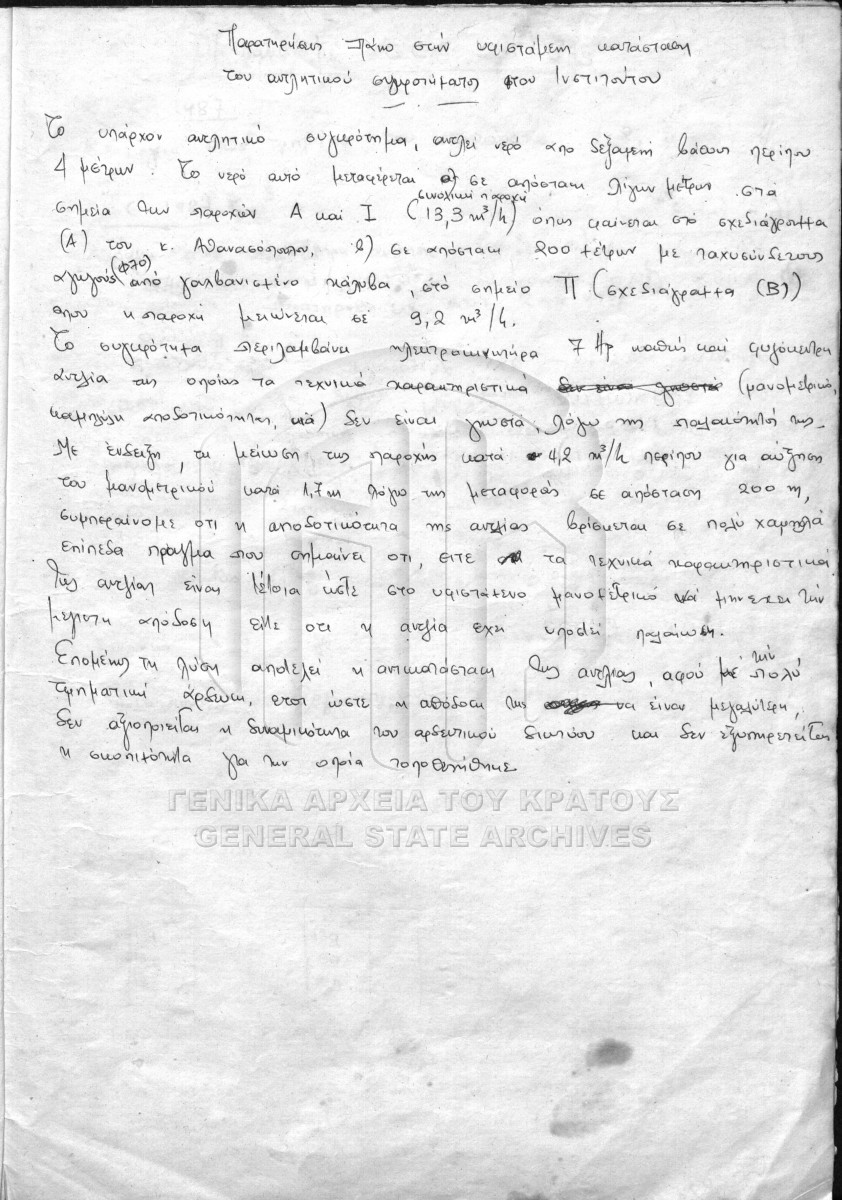 Παρατηρήσεις πάνω στην υφιστάμενη κατάσταση
του αντλητικού συγκροτήματος του Ινστιτούτου
Το υπάρχον αντλητικό συγκρότημα, αντλεί νερό απο δεξαμενή βάθους περίπου
4 μέτρων. Το νερό αυτό μεταφέρεται α) σε απόσταση λίγων μέτρων στα
σημεία των παροχών Α και Ι (συνολική παροχή 13,3 m³/h) όπως φαίνεται στο σχεδιάγραμμα
(Α) του κ. Αθανασόπουλου, β) σε απόσταση 200 μέτρων με ταχυσύνδετους
αγωγούς (Φ70) από γαλβανισμένο χάλυβα, στο σημείο Π (σχεδιάγραμμα (Β))
οπου η παροχή μειώνεται σέ 9,2 m³/h.
Το συγκρότημα περιλαμβάνει ηλεκτροκινητήρα 7 Hp καθώς και φυγόκεντρη
αντλία της οποίας τα τεχνικά χαρακτηριστικά δεν είναι γνωστά (μανομετρικό,
καμπύλη αποδοτικότητας, κτλ) δεν είναι γνωστά, λόγω της παλαιότητάς της.
Με ένδειξη, τη μείωση της παροχής κατά 4,2 m³/h περίπου για αύξηση
του μανομετρικού κατά 1,7 m λόγω της μεταφοράς σε απόσταση 200 m,
συμπεραίνομε οτι η αποδοτικότητα της αντλίας βρίσκεται σε πολύ χαμηλά
επίπεδα πράγμα που σημαίνει οτι, ειτε τα τεχνικά χαρακτηριστικά
της αντλίας είναι τέτοια ώστε στο υφιστάμενο μανομετρικό νά μην εχει την
μέγιστη απόδοση είτε οτι η αντλία εχει υποστεί παλαίωση.
Επομένως τη λύση αποτελεί η αντικατάσταση της αντλίας, αφού με την πολύ
τμηματική άρδευση, ετσι ώστε η απόδοση της να είναι μεγαλύτερη,
δεν αξιοποιείται η δυναμικότητα του αρδευτικού δικτύου και δεν εξυπηρετείται
η σκοπιμότητα για την οποία τοποθετήθηκε
ΓΕΝΙΚΑ ΑΡΧΕΙΑ ΤΟΥ ΚΡΑΤΟΥΣ
GENERAL STATE ARCHIVES